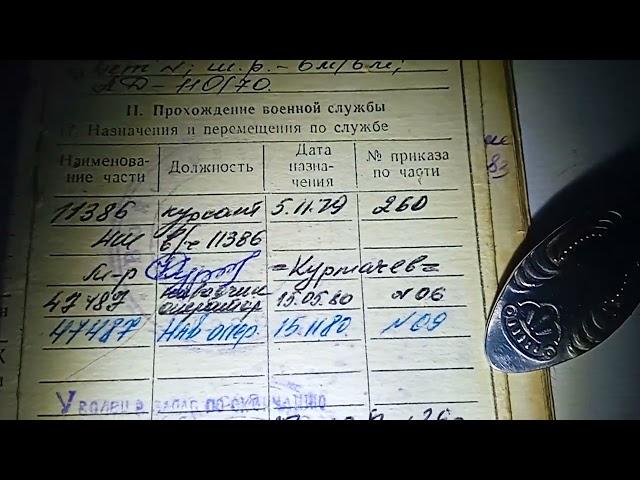 АД-110/70.
II. Прохождение военной службы
17. Назначения и перемещения по службе
Наименова- ние части Должность Дата назна- чения № приказа по части
11386 курсант 5.11.79 260
НШ в/ч 11386
м-р =Курташев=
47487 оператор 15.05.80 №06
47487 Нач опер. 15.11.80 №09
Уволен в запас по окончанию